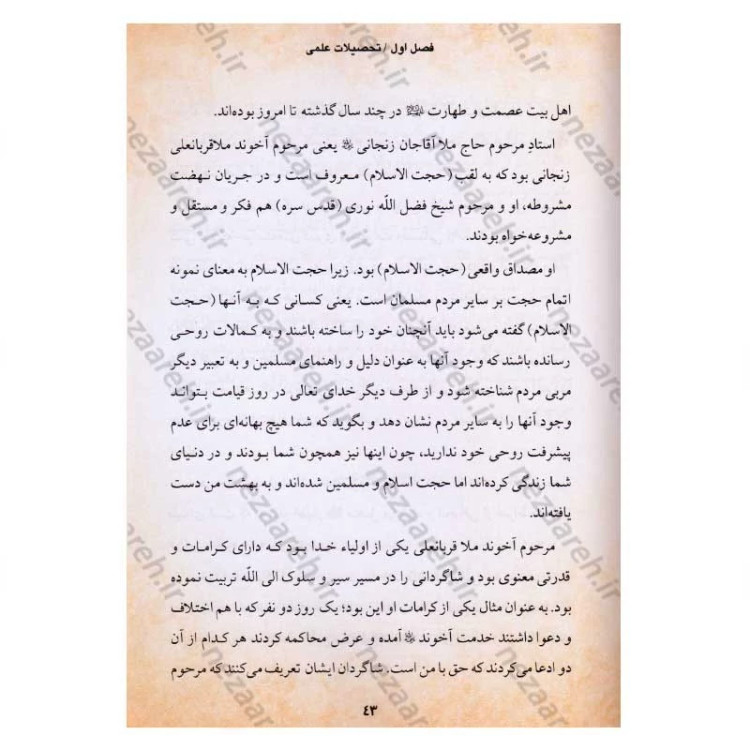 فصل اول / تحصیلات علمی
اهل بیت عصمت و طهارت در چند سال گذشته تا امروز بوده‌اند.
استادِ مرحوم حاج ملا آقاجان زنجانی یعنی مرحوم آخوند ملاقربانعلی
زنجانی بود که به لقب (حجت الاسلام) معروف است و در جریان نهضت
مشروطه، او و مرحوم شیخ فضل اللّه نوری (قدس سره) هم فکر و مستقل و
مشروعه‌خواه بودند.
او مصداق واقعی (حجت الاسلام) بود. زیرا حجت الاسلام به معنای نمونه
اتمام حجت بر سایر مردم مسلمان است. یعنی کسانی که به آنها (حجت
الاسلام) گفته می‌شود باید آنچنان خود را ساخته باشند و به کمالات روحی
رسانده باشند که وجود آنها به عنوان دلیل و راهنمای مسلمین و به تعبیر دیگر
مربی مردم شناخته شود و از طرف دیگر خدای تعالی در روز قیامت بتواند
وجود آنها را به سایر مردم نشان دهد و بگوید که شما هیچ بهانه‌ای برای عدم
پیشرفت روحی خود ندارید، چون اینها نیز همچون شما بودند و در دنیای
شما زندگی کرده‌اند اما حجت اسلام و مسلمین شده‌اند و به بهشت من دست
یافته‌اند.
مرحوم آخوند ملا قربانعلی یکی از اولیاء خدا بود که دارای کرامات و
قدرتی معنوی بود و شاگردانی را در مسیر سیر و سلوک الی اللّه تربیت نموده
بود. به عنوان مثال یکی از کرامات او این بود؛ یک روز دو نفر که با هم اختلاف
و دعوا داشتند خدمت آخوند آمده و عرض محاکمه کردند هر کدام از آن
دو ادعا می‌کردند که حق با من است. شاگردان ایشان تعریف می‌کنند که مرحوم
٤٣
nezaareh.ir